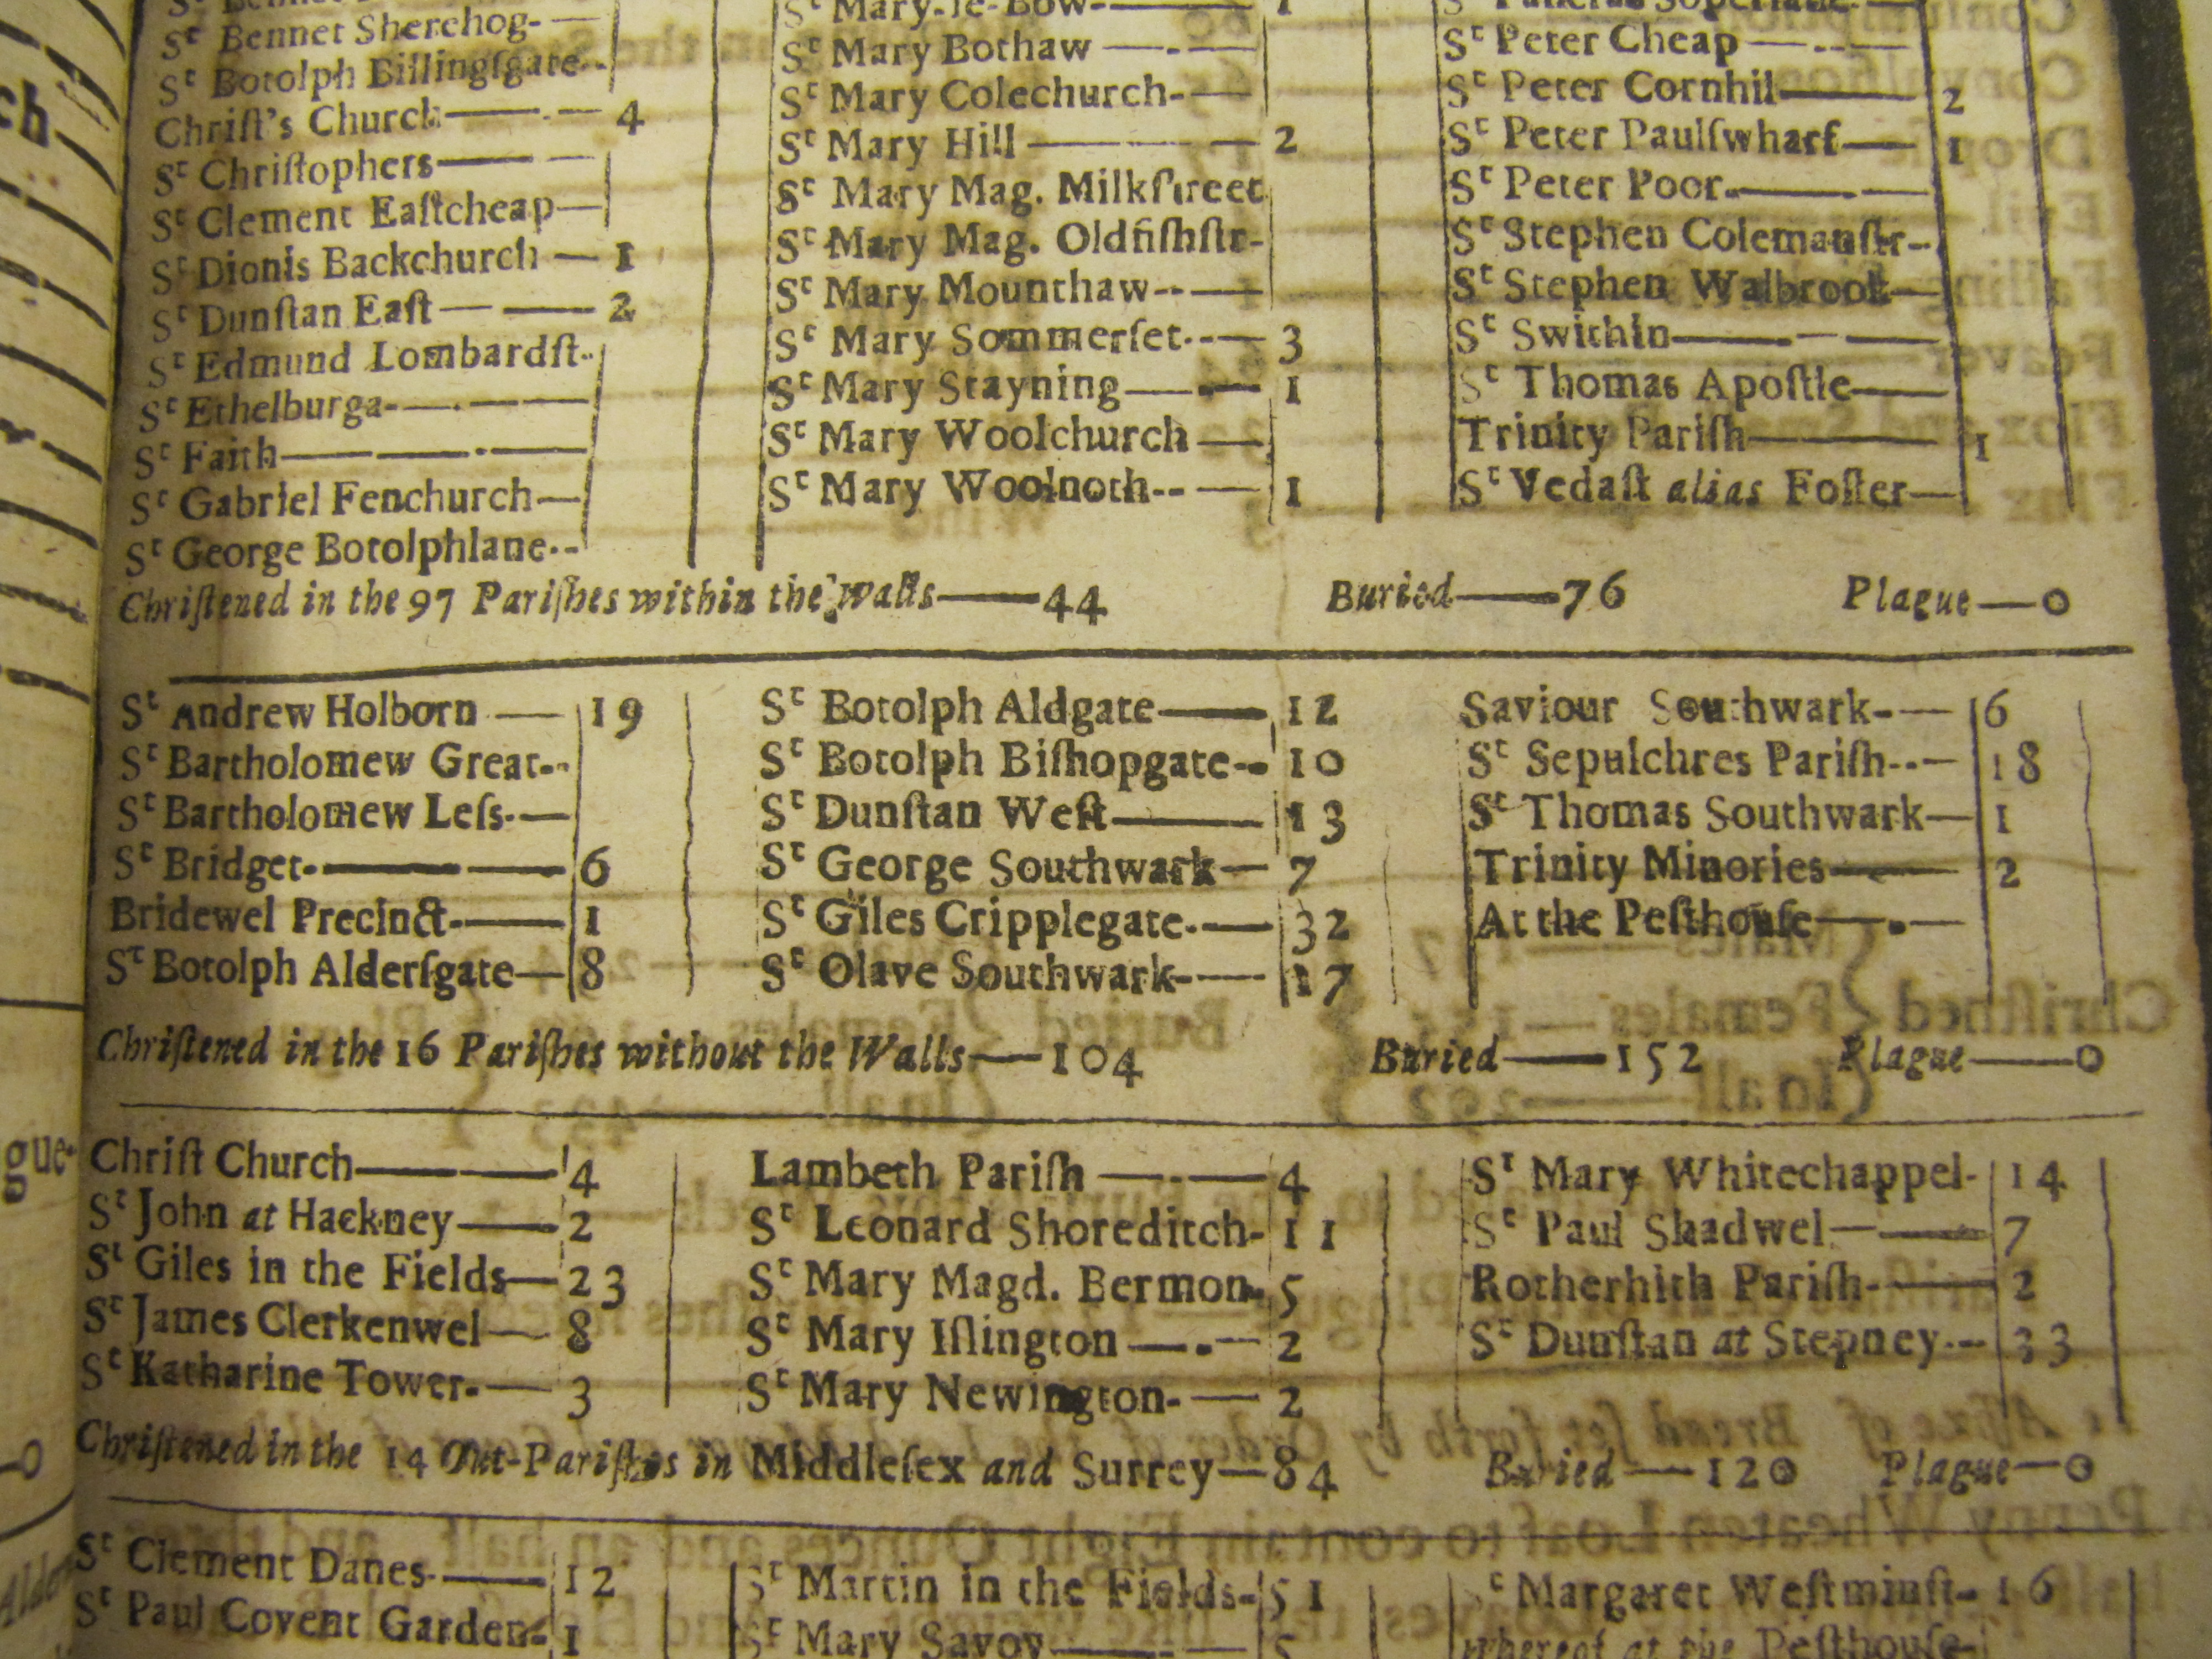 St Bennet Sherehog
St Botolph Billingſgate
Chriſt's Church 4
St Chriſtophers
St Clement Eaſtcheap
St Dionis Backchurch 1
St Dunſtan Eaſt 2
St Edmund Lombardſt
St Ethelburga
St Faith
St Gabriel Fenchurch
St George Botolphlane
St Mary-le-Bow 1
St Mary Bothaw
St Mary Colechurch
St Mary Hill 2
St Mary Mag. Milkſtreet
St Mary Mag. Oldfiſhſtr
St Mary Mounthaw
St Mary Sommerſet 3
St Mary Stayning 1
St Mary Woolchurch
St Mary Woolnoth 1
St Peter Cheap
St Peter Cornhil 2
St Peter Paulſwharf 1
St Peter Poor
St Stephen Colemanſtr
St Stephen Walbrook
St Swithin
St Thomas Apoſtle
Trinity Pariſh 1
St Vedaſt alias Foſter
Chriſtened in the 97 Pariſhes within the walls 44 Buried 76 Plague 0
St Andrew Holborn 19
St Bartholomew Great
St Bartholomew Leſs
St Bridget 6
Bridewel Precinct 1
St Botolph Alderſgate 8
St Botolph Aldgate 12
St Botolph Biſhopgate 10
St Dunſtan Weſt 13
St George Southwark 7
St Giles Cripplegate 32
St Olave Southwark 17
Saviour Southwark 6
St Sepulchres Pariſh 18
St Thomas Southwark 1
Trinity Minories 2
At the Peſthouſe
Chriſtened in the 16 Pariſhes without the Walls 104 Buried 152 Plague 0
Chriſt Church 4
St John at Hackney 2
St Giles in the Fields 23
St James Clerkenwel 8
St Katharine Tower 3
Lambeth Pariſh 4
St Leonard Shoreditch 11
St Mary Magd. Bermon 5
St Mary Iſlington 2
St Mary Newington 2
St Mary Whitechappel 14
St Paul Shadwel 7
Rotherhith Pariſh 2
St Dunſtan at Stepney 33
Chriſtened in the 14 Out-Pariſhes in Middleſex and Surrey 84 Buried 120 Plague 0
St Clement Danes 12
St Paul Covent Garden 1
St Martin in the Fields 51
St Mary Savoy 5
St Margaret Weſtminſt 16
whereof at the Peſthouſe